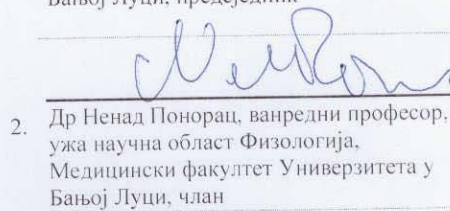 Бањој Луци, предсједник
2. Др Ненад Понорац, ванредни професор,
ужа научна област Физологија,
Медицински факултет Универзитета у
Бањој Луци, члан